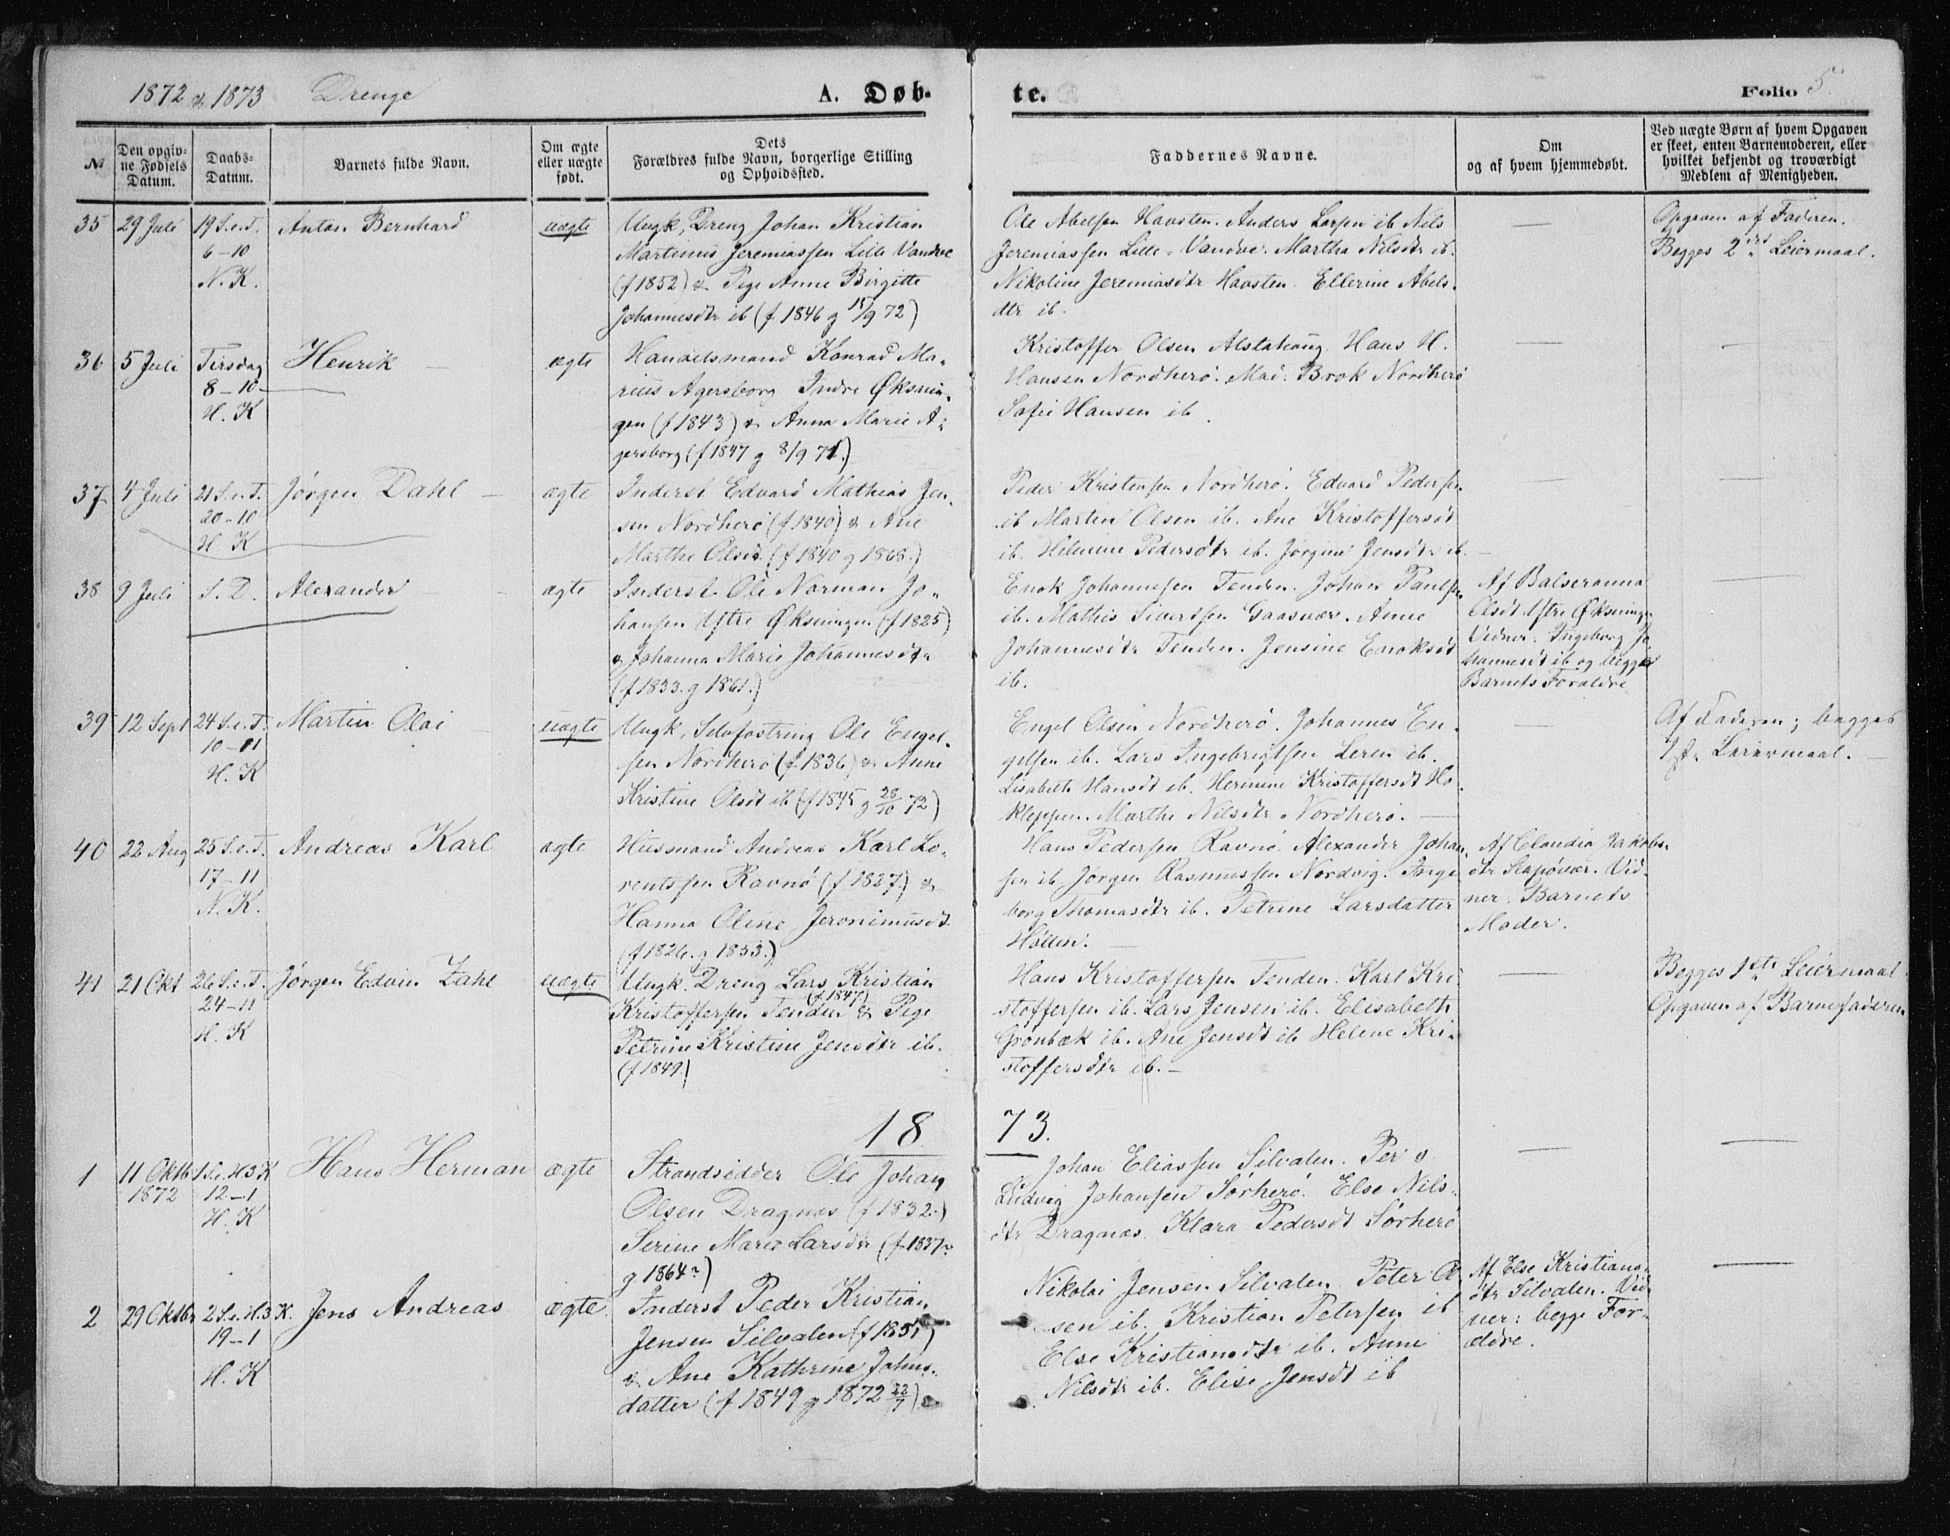 1872 & 1873 Drenge A. Døb- te. Folio 5.
№
Den opgiv-
ne Fødsels
Datum.
Daabs-
Datum.
Barnets fulde Navn.
Om ægte
eller uægte
født.
Dets
Forældres fulde Navn, borgerlige Stilling
og Opholdssted.
Faddernes Navne.
Om
og af hvem hjemmedøbt.
Ved uægte Børn af hvem Opgaven
er skeet, enten Barnemoderen, eller
hvilket bekjendt og troværdigt
Medlem af Menigheden.
35 29 Juli 19 S.e.T.
6-10
N. K.
Anton Bernhard
uægte
Ungk, Dreng Johan Kristian
Martinus Jeremiassen Lille Vandve
(f 1852) & Pige Anne Birgitte
Johannesdtr ib (f 1846 g 15/9 72)
Ole Abelsen Havsten. Anders Larsen ib Nils
Jeremiassen Lille-Vandve. Martha Nilsdtr ib.
Nikoline Jeremiasdtr Havsten. Ellerine Abels-
dtr ib.
—
Opgaven af Faderen.
Begges 2det Leiermaal.
36 5 Juli Tirsdag
8-10
H. K
Henrik —
ægte
Handelsmand Konrad Ma-
rius Agersborg Indre Øksnin-
gen (f 1843) & Anna Marie A-
gersborg (f 1847 g 8/9 71.)
Kristoffer Olsen Alstahaug. Hans H.
Hansen Nordherø. Mad. Brok Nordherø
Sofie Hansen ib.
—
—
37 4 Juli 21 S.e.T.
20-10
H. K
Jørgen Dahl —
ægte
Inderst Edvard Mathias Jen-
sen Nordherø (f 1840) & Ane
Marthe Olsd. (f 1840 g 1868.)
Peder Kristensen Nordherø. Edvard Pedersen
ib Martin Olsen ib. Ane Kristoffersdt
ib. Helmine Pedersdtr ib. Jørgine Jensdtr ib.
—
—
38 9 Juli S. D.
Alexander —
ægte
Inderst Ole Norman Jo-
hansen Østre Øksningen (f 1825)
& Johanna Marie Johannesdtr
(f 1833. g 1861.)
Enok Johannesen Tenden. Johan Paulsen
ib. Mathis Sivertsen Gaasvær. Anne
Johannesdtr Tenden. Jensine Enoksdt
ib.
Af Balseranna
Olsdt Østre Øksningen
Vidner: Ingeborg Jo
hannesdt ib og begge
Barnets Forældre
—
39 12 Sept 24 S.e.T.
10-11
H. K
Martin Olai —
uægte
Ungk, Selvfostring Ole Engel-
sen Nordherø (f 1836) & Anne
Kristine Olsdt ib (f 1845 g 28/10 72)
Engel Olsen Nordherø. Johannes En-
gelsen ib. Lars Ingebrigtsen Leren ib.
Lisabeth Hansdt ib. Hermine Kristoffersdt Ho-
kleppen. Marthe Nilsdtr Nordherø. —
—
Af Faderen; begges
1ste Leiermaal. —
40 22 Aug 25 S.e.T.
17-11
N. K.
Andreas Karl
ægte
Husmand Andreas Karl Lo-
rentssen Ravnø (f 1827.) &
Hanna Oline Jeronimusdt
(f 1826. g 1853.)
Hans Pedersen Ravnø. Alexander Johan-
sen ib. Jørgen Rasmussen Nordvig. Inge
borg Thomasdtr ib. Petrine Larsdatter
Holten. —
Af Claudia Jakobs-
dtr Slapøvær. Vid-
ner. Barnets
Moder.
41 21 Okt 26 S.e.T.
24-11
H. K
Jørgen Edvin Zahl
uægte
Ungk. Dreng Lars Kristian
Kristoffersen Tenden (f 1847) & Pige
Petrine Kristine Jensdtr ib.
(f 1849.)
Hans Kristoffersen Tenden. Karl Kri
stoffersen ib. Lars Jensen ib. Elisabeth
Grønbæk ib. Ane Jensdt ib Helene Kri-
stoffersdtr ib. —
—
Begges 1ste Leiermaal.
Opgaven af Barnefaderen
18 73.
1 11 Oktb
1872
1 S.e. H3K
12-1
H. K
Hans Herman
ægte
Strandsidder Ole Johan
Olsen Dragnæs (f 1832.)
Serine Marie Larsdtr (f 1837.
g. 1864?)
Johan Eliassen Silvalen. Per &
Ludvig Johansen Sørherø. Else Nils-
dtr Dragnæs. Klara Pedersdt Sørherø
—
—
2 29 Oktbr 2 S.e. H3K.
19-1
H. K
Jens Andreas
ægte
Inderst Peder Kristian
Jensen Silvalen (f 1851)
& Ane Kathrine Johns-
datter (f 1849 g 1872 22/7)
Nikolai Jensen Silvalen. Peter O-
sen ib. Kristian Petersen ib
Else Kristiansdtr ib. Anne
Nilsdtr ib. Elise Jensdt ib
Af Else Kristians-
dtr Silvalen. Vid-
ner: begge For-
ældre.
—